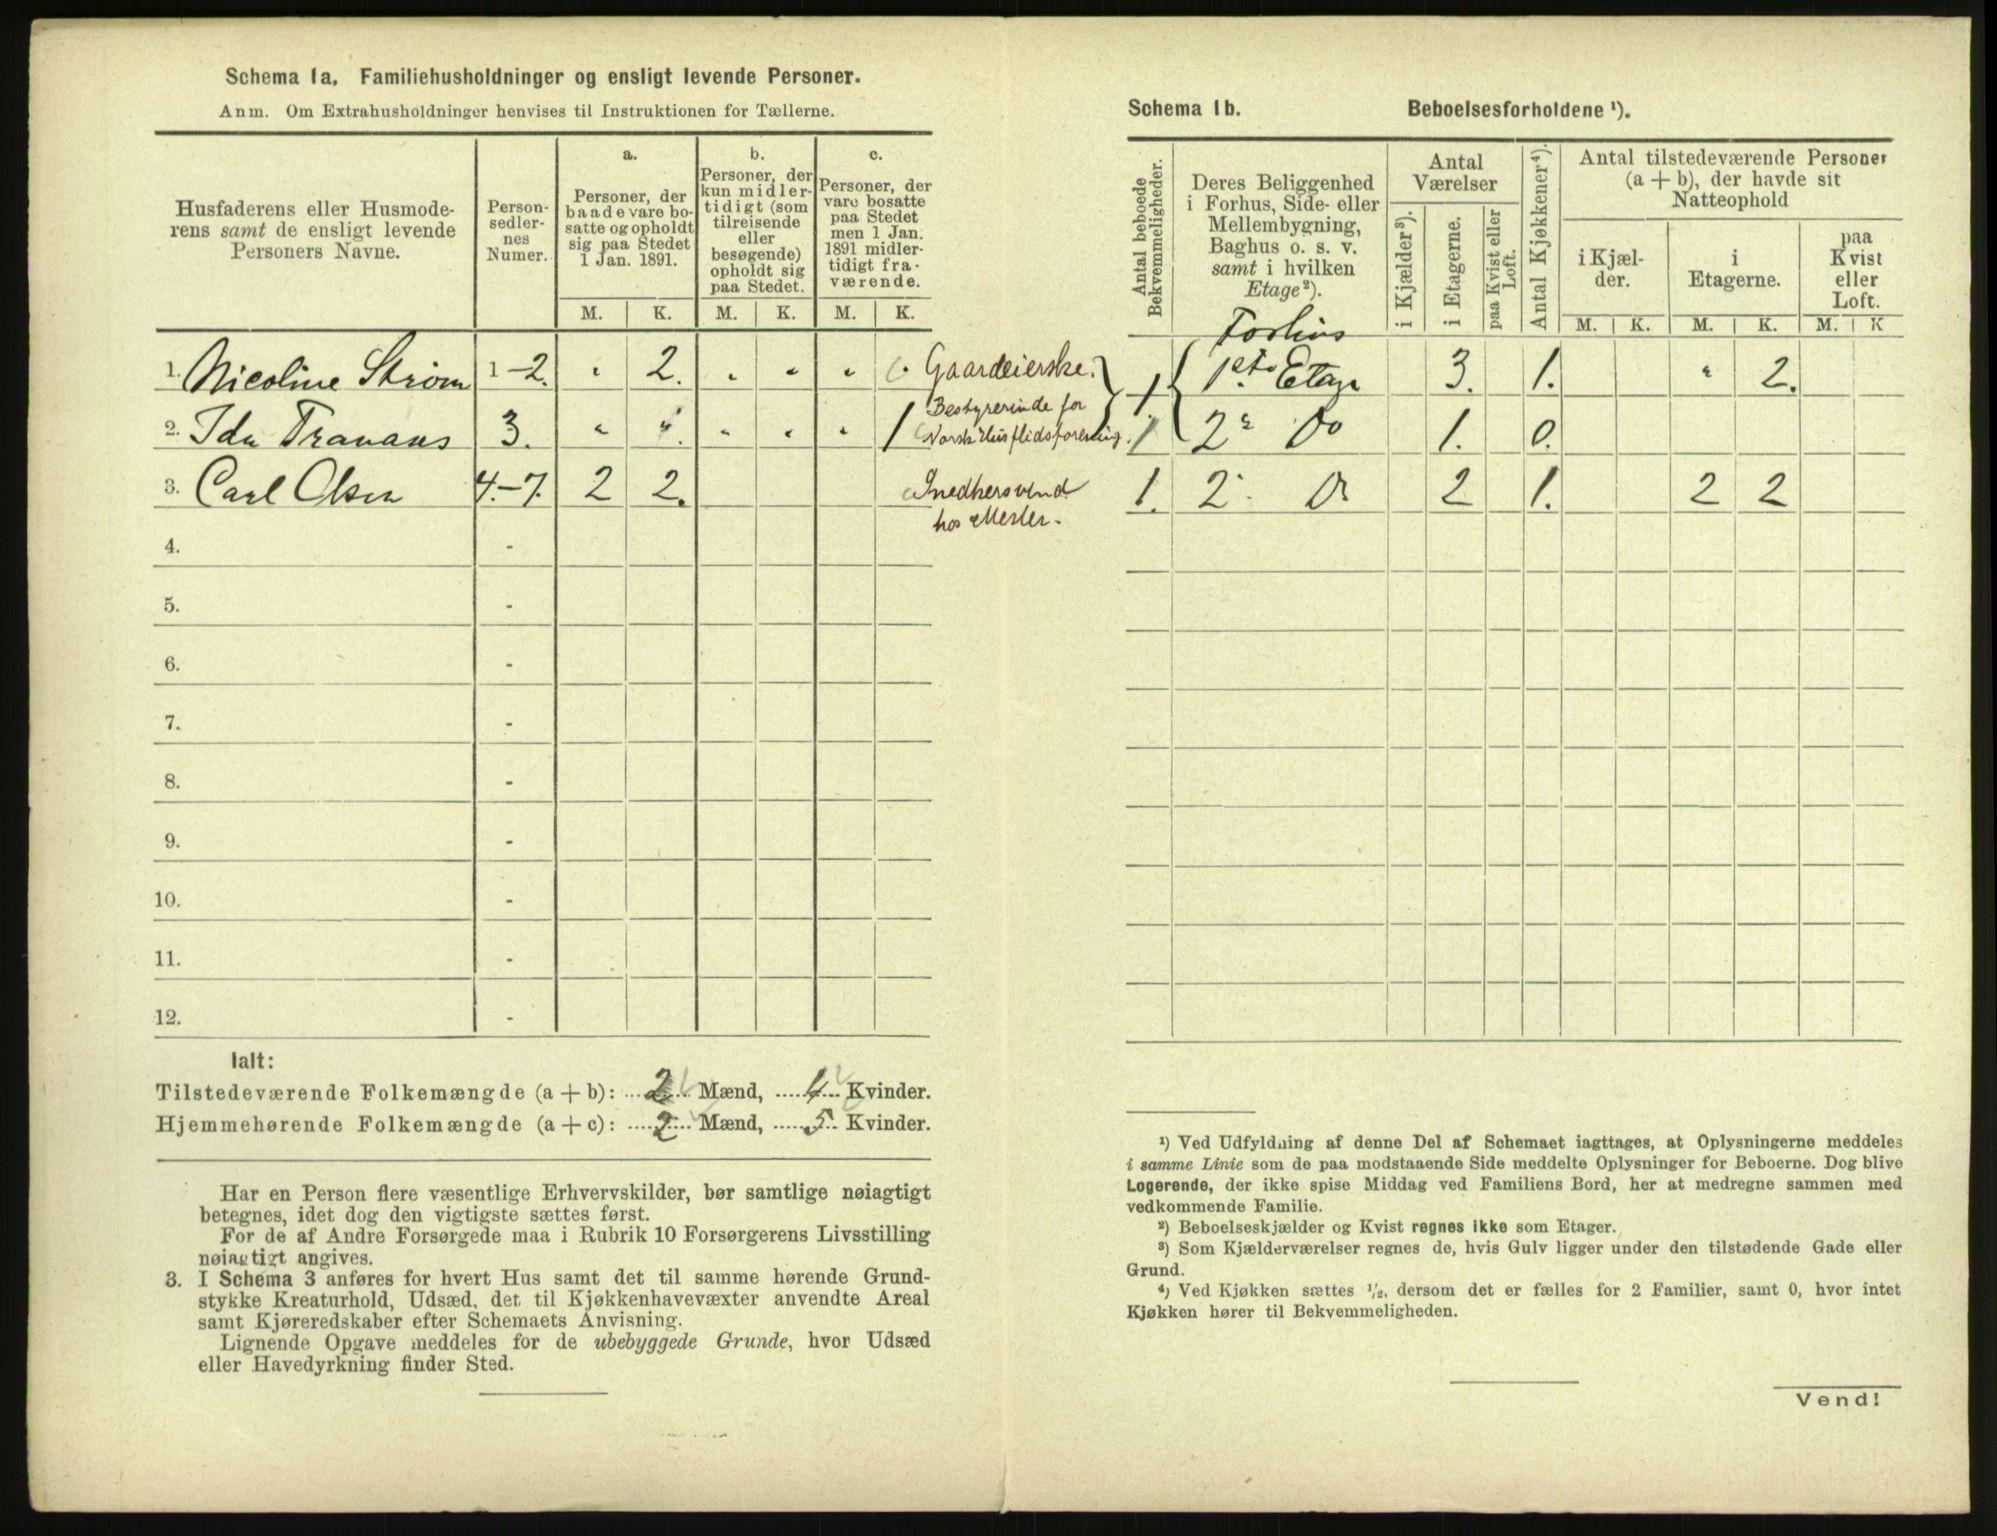 Schema 1a. Familiehusholdninger og ensligt levende Personer.
Anm. Om Extrahusholdninger henvises til Instruktionen for Tællerne.
Husfaderens eller Husmode-
rens samt de ensligt levende
Personers Navne.
Person-
sedler-
nes
Numer.
a.
Personer, der
baade vare bo-
satte og opholdt
sig paa Stedet
1 Jan. 1891.
M. K.
b.
Personer, der
kun midler-
tidigt (som
tilreisende
eller
besøgende)
opholdt sig
paa Stedet.
M. K.
c.
Personer, der
vare bosatte
paa Stedet
men 1 Jan.
1891 midler-
tidigt fra-
værende.
M. K.
1. Nicoline Strøm 1-2. " 2. " " " " Gaardeierske.
2. Ida Tranaas 3. " " " " " 1 Bestyrerinde for
Norsk Husflidsforening.
3. Carl Olsen 4.-7. 2 2. Snedkersvend
hos Mester.
4. -
5. -
6. -
7. -
8. -
9. -
10. -
11. -
12. -
Ialt:
Tilstedeværende Folkemængde (a + b): 2 Mænd, 4 Kvinder.
Hjemmehørende Folkemængde (a + c): 2 Mænd, 5 Kvinder.
Har en Person flere væsentlige Erhvervskilder, bør samtlige nøiagtigt
betegnes, idet dog den vigtigste sættes først.
For de af Andre Forsørgede maa i Rubrik 10 Forsørgerens Livsstilling
nøiagtigt angives.
3. I Schema 3 anføres for hvert Hus samt det til samme hørende Grund-
stykke Kreaturhold, Udsæd, det til Kjøkkenhavevæxter anvendte Areal
samt Kjøreredskaber efter Schemaets Anvisning.
Lignende Opgave meddeles for de ubebyggede Grunde, hvor Udsæd
eller Havedyrkning finder Sted.
Schema 1b. Beboelsesforholdene ¹).
Antal beboede
Bekvemmeligheder.
Deres Beliggenhed
i Forhus, Side- eller
Mellembygning,
Baghus o. s. v.
samt i hvilken
Etage²).
Antal
Værelser
i Kjælder³).
i Etagerne.
paa Kvist eller
Loft.
Antal Kjøkkener⁴).
Antal tilstedeværende Personer
(a + b), der havde sit
Natteophold
i Kjæl-
der.
i
Etagerne.
paa
Kvist
eller
Loft.
M. K. M. K. M. K
Forhus
1 1ste Etage 3. 1. " 2.
1 2 Do 1. 0.
1. 2 Do 2 1. 2 2
¹) Ved Udfyldning af denne Del af Schemaet iagttages, at Oplysningerne meddeles
i samme Linie som de paa modstaaende Side meddelte Oplysninger for Beboerne. Dog blive
Logerende, der ikke spise Middag ved Familiens Bord, her at medregne sammen med
vedkommende Familie.
²) Beboelseskjælder og Kvist regnes ikke som Etager.
³) Som Kjælderværelser regnes de, hvis Gulv ligger under den tilstødende Gade eller
Grund.
⁴) Ved Kjøkken sættes ½, dersom det er fælles for 2 Familier, samt 0, hvor intet
Kjøkken hører til Bekvemmeligheden.
Vend!